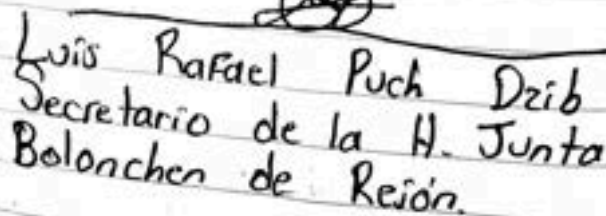 Luis Rafael Puch Dzib
Secretario de la H. Junta
Bolonchen de Rejón.